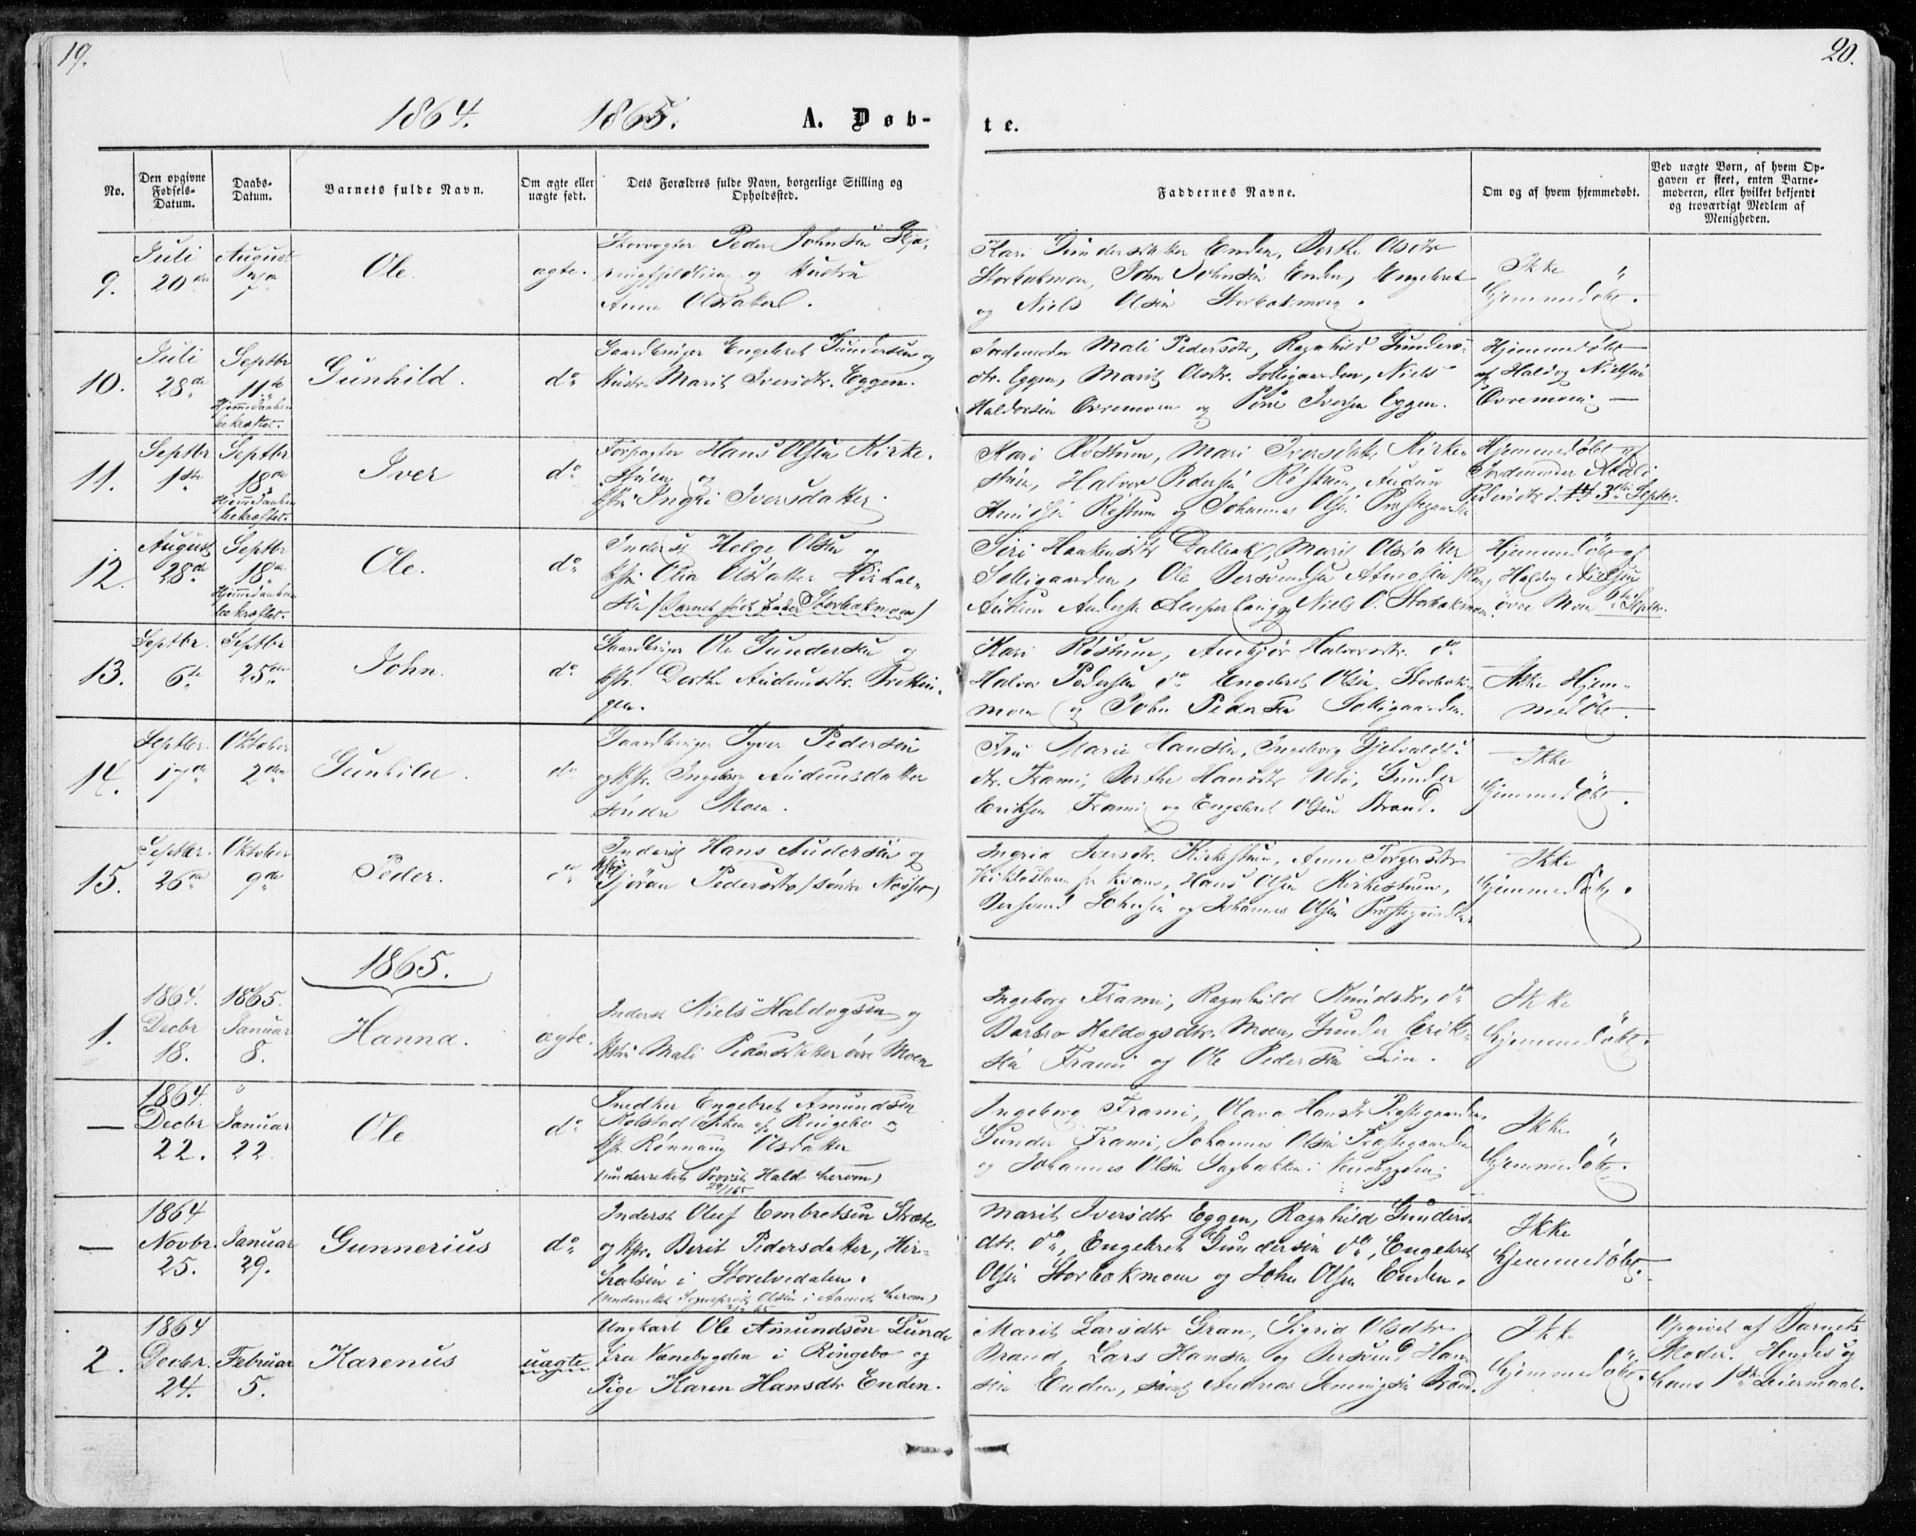 19.
20.
1864. 1865. A. Døb-
te.
No.
Den opgivne Fødsels-Datum.
Daabs-Datum.
Barnets fulde Navn.
Om ægte eller uægte født.
Dets Forældres fulde Navn, borgerlige Stilling og Opholdssted.
Faddernes Navne.
Om og af hvem hjemmedøbt.
Ved uægte Børn, af hvem Opgaven er skeet, enten Barnemoderen, eller hvilket bekjendt og troværdigt Medlem af Menigheden.
9.
Juli 20de
August
Ole.
ægte.
Skovvogter Peder Johnsen
og Hustru
Anne Olsdatter.
Kari Gundersdatter Enden, Berthe Olsdtr
Storbækmoen, John Johnsen Enden, Engebret
og Niels Olsen Storbækmoen.
Ikke
Hjemmedøbt.
10.
Juli 28de
Septbr 11te
Hjemmedaaben bekræftet.
Gunhild.
do
Gaardbruger Engebret Gundersen og
Hustru Marit Iversdtr. Eggen.
Jordemoder Mali Pedersdtr, Ragnhild Gunders-
dtr. Eggen, Marit Olsdtr. Solligaarden, Niels
Haldorsen Øvremoen og Iversen Eggen.
Hjemmedøbt
af Haldog Nielsen
Øvremoen
11.
Septbr 1ste
Septbr 18de
Hjemmedaaben bekræftet.
Iver
do
Forpagter Hans Olsen Kirke-
stuen og
Hstr. Ingri Iversdatter.
Kari Røstum, Mari Iversdatter Kirke-
stuen, Halvor Pedersen Røstum, Audun
Røstum og Johannes Olsen Præstegaarden
Hjemmedøbt af
Jordemoder Mali
Pedersdtr d. 3die Septbr.
12.
August 28de
Septbr 18de
Hjemmedaaben bekræftet.
Ole.
do
Inderst Helge Olsen og
Hstr. Olia Olsdatter
(Barnet født under Storbækmoen)
Siri Haakensdtr Marit Olsdatter
Solligaarden, Ole
Niels O. Storbækmoen.
Hjemmedøbt af
Haldog Nielsen
øvre Moen 6te Septbr.
13.
Septbr. 6te
Septbr 25de
John.
do
Gaardbruger Ole Gundersen og
Hstr. Berthe Audunsdtr. Brettin-
gen.
Kari Røstum, Anbjør Halvorsdtr. do
Halvor Pedersen do Engebret Olsen Storbæk-
moen og John Pedersen Solligaarden.
Ikke Hjem-
medøbt.
14.
Septbr. 17de
Oktober 2den
Gunhild.
do
Gaardbruger Syver Pedersen
og Hstr. Ingeborg Audunsdatter
søndre Moen.
Fru Marie Hansen, Ingeborg
dtr. Frami, Berthe Hansdtr Gunder
Eriksen Frami og Engebret Olsen Brænd.
Ikke
Hjemmedøbt.
15.
Septbr. 26de
Oktober 9de
Peder.
do
Inderst Hans Andersen og
Hstr.
Pedersdtr
Ingrid Iversdtr. Kirkestuen, Anne Torgersdtr
fr Kvam, Hans Olsen Kirkestuen,
Johnsen og Johannes Olsen Præstegaarden
Ikke
Hjemmedøbt.
1865.
1.
1864. Decbr 18.
1865. Januar 8.
Hanna.
ægte.
Inderst Niels Haldogsen og
Hstr. Mali Pedersdatter øvre Moen
Ingeborg Frami, Ragnhild Knudsdtr, do
Barbro Haldogsdtr. Moen, Gunder Erik-
sen Frami og Ole Pedersen Lien.
Ikke
Hjemmedøbt.
—
1864. Decbr 22.
" Januar 22.
Ole
do
Snedker Engebret Amundsen
Tolstadløkken af Ringebo og
Hstr. Rønnaug Olsdatter
(underrettet Provst Hald herom)
29/1 65
Ingeborg Frami, Olava Hansdtr Præstegaarden
Gunder Frami, Johannes Olsen Præstegaarden
og Johannes Olsen Sagbakken i Venebygden.
Ikke
Hjemmedøbt.
—
1864 Novbr. 25.
Januar 29.
Gunnerius
do
Inderst Oluf Embretsen Stræte
og Hstr. Berit Pedersdatter,
i Storelvedalen.
Marit Iversdtr Eggen, Ragnhild Gunders-
dtr. do, Engebret Gundersen do, Engebret
Olsen Storbækmoen og John Olsen Enden.
Ikke
Hjemmedøbt.
2.
1864 Decbr. 24.
Februar 5.
Karenus
uægte
Ungkarl Ole Amundsen Lunde
fra Venebygden i Ringebo og
Pige Karen Hansdtr Enden.
Marit Larsdtr Gran, Sigrid Olsdtr
Brænd, Lars Hansen og Han-
sen Enden, samt Andreas Brænd.
Ikke
Hjemmedøbt.
Opgivet af Barnets
Moder. Hendes og
hans 1ste Leiermaal.